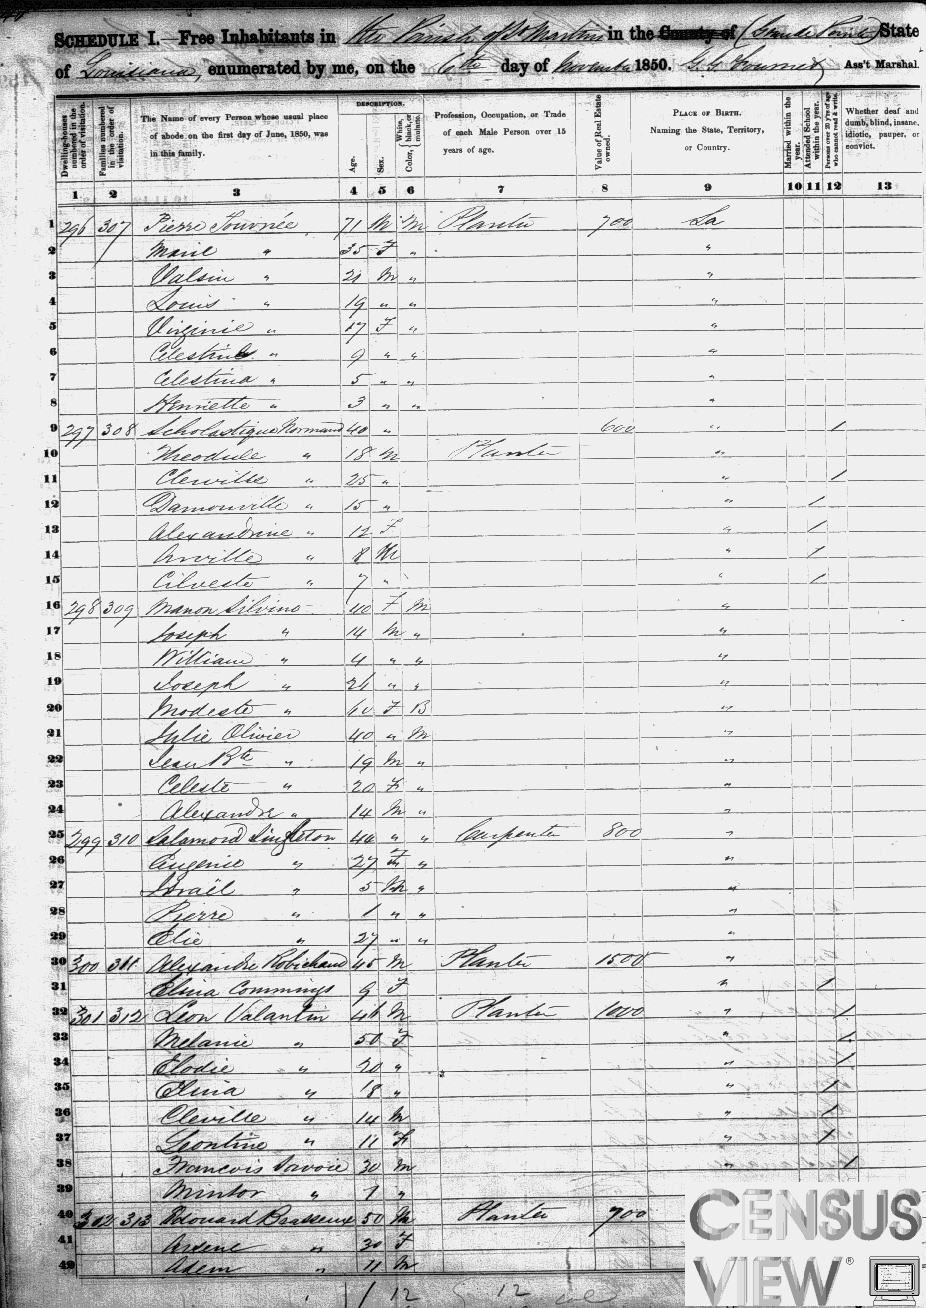 SCHEDULE I.—Free Inhabitants in the Parish of St Martin in the County of (Grande Pointe) State
of Louisiana, enumerated by me, on the 6th day of November 1850. Ass't Marshal.
Dwelling-houses numbered in the order of visitation.
Families numbered in the order of visitation.
The Name of every Person whose usual place of abode on the first day of June, 1850, was in this family.
DESCRIPTION.
Age.
Sex.
Color, White, black, or mulatto.
Profession, Occupation, or Trade of each Male Person over 15 years of age.
Value of Real Estate owned.
PLACE OF BIRTH. Naming the State, Territory, or Country.
Married within the year.
Attended School within the year.
Persons over 20 y'rs of age who cannot read & write.
Whether deaf and dumb, blind, insane, idiotic, pauper, or convict.
1 2 3 4 5 6 7 8 9 10 11 12 13
1 296 307 Pierre Journée 71 M M Planter 700 La
2 Marie " 35 F " "
3 Valsin " 21 M " "
4 Louis " 19 " " "
5 Virginie " 17 F " "
6 " 9 " " "
7 Celestina " 5 " " "
8 Henriette " 3 " " "
9 297 308 Scholastique Normand 40 " 600 " /
10 Theodule " 18 M Planter "
11 Cleville " 25 " " /
12 Damonville " 15 " " /
13 Alexandrine " 12 F " /
14 Arville " 8 M " /
15 Cilveste " 7 " " /
16 298 309 Manon Silvino 40 F M "
17 Joseph " 14 M " "
18 William " 4 " " "
19 Joseph " 21 " " "
20 Modeste " 60 F B "
21 Julie Olivier 40 " M "
22 Jean Bte " 19 M " "
23 Celeste " 20 F " "
24 Alexandre " 14 M " "
25 299 310 Salamond Singleton 44 " " Carpenter 800 "
26 Eugenie " 27 F " "
27 Israël " 5 M " "
28 Pierre " 1 " " "
29 Elie " 27 " " "
30 300 311 Alexandre Robichaud 45 M Planter 1500 "
31 Elina Commings 9 F " /
32 301 312 Leon Valantin 46 M Planter 1000 " /
33 Melanie " 50 F " /
34 Elodie " 20 " " /
35 Elina " 18 " " /
36 Cleville " 14 M " /
37 Leontine " 11 F " /
38 Francois Savoie 30 M " /
39 " 7 "
40 302 313 Edouard Brasseux 50 M Planter 700
41 Arsene " 30 F
42 Adem " 11 M
12 12
CENSUS
VIEW®